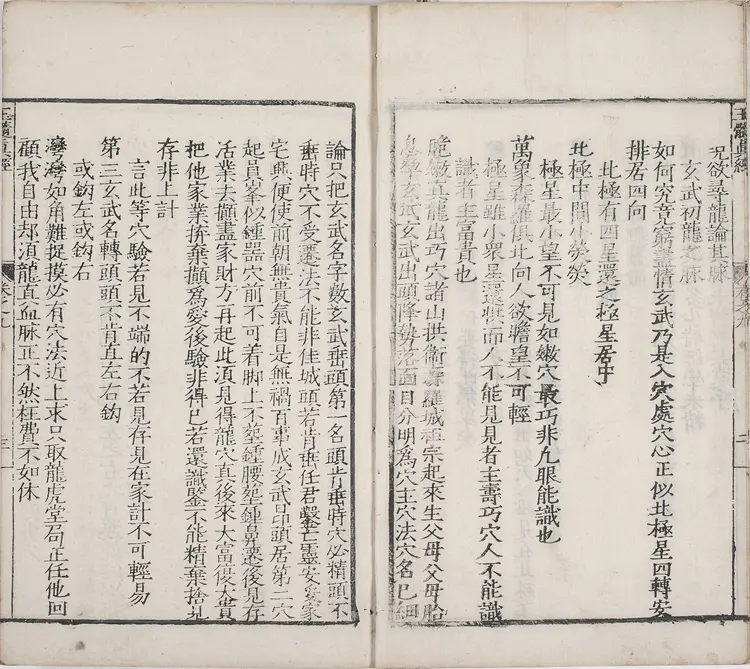 況欲尋龍論其脉
玄武初龍之脉
如何究竟窮盡情玄武乃是入穴處穴心正似北極星四轉安
排居四向
北極有四星還之極星居中
北極中間小熒熒
極星最小望不可見如嫩穴最巧非凡眼能識也
萬象森羅俱北向人欲瞻皇不可輕
極星雖小衆星還惟而人不能見見者主壽巧穴人不能識
識者主富貴也
脆嫩真龍出巧穴諸山拱衛森羅城祖宗起來生父母父母胎
息孕玄武玄武出頭降勢落面目分明為穴主穴法穴名已細
論只把玄武名字數玄武垂頭第一名頭肯垂時穴必精頭不
垂時穴不受遷法不能非佳城頭若肯垂任君鑿亡靈安妥家
宅興便使前朝無貴氣自是無禍百事成玄武昂頭居第二穴
起員峯似鍾器穴前不可着脚上不塟鍾腰塟鍾鼻遷後見存
活業去顚盡家財方再起此湏見得龍穴真後來大富後大貴
把他家業拚棄顚為愛後驗非得已若還識鑒不能精棄捨見
存非上計
言此等穴驗若見不端的不若見存見在家計不可輕易
第三玄武名轉頭頭不肯直左右鈎
或鈎左或鈎右
灣灣如角難捉摸必有穴法近上求只取龍虎堂局正任他回
顧我自由却湏龍真血脉正不然枉費不如休
玉髓真經
卷之九
三